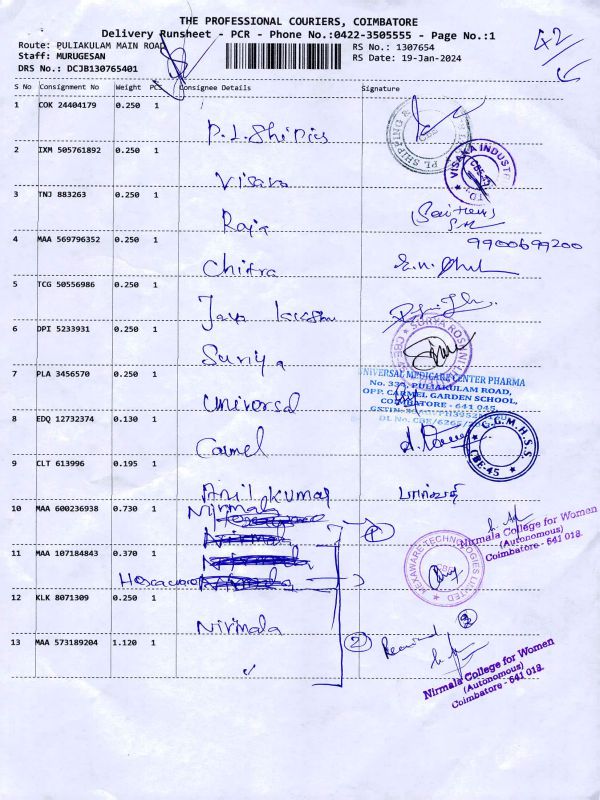 THE PROFESSIONAL COURIERS, COIMBATORE
Delivery Runsheet - PCR - Phone No.:0422-3505555 - Page No.:1
Route: PULIAKULAM MAIN ROAD
RS No.: 1307654
42
Staff: MURUGESAN
RS Date: 19-Jan-2024
DRS No.: DCJB130765401
S No Consignment No Weight PCS Consignee Details Signature
1 COK 24404179 0.250 1
P.L. Shipping
PL SHIPPING &
2 IXM 505761892 0.250 1
Visaka
VISAKA INDUST
CBE-45
3 TNJ 883263 0.250 1
Raja
9900699200
4 MAA 569796352 0.250 1
Chitra
5 TCG 50556986 0.250 1
Jaya
6 DPI 5233931 0.250 1
Suriya
SURYA
7 PLA 3456570 0.250 1
Universal
UNIVERSAL MEDICARE CENTER PHARMA
No. 333, PULIAKULAM ROAD,
OPP. CARMEL GARDEN SCHOOL,
COIMBATORE - 641 045.
8 EDQ 12732374 0.130 1
Carmel
G.M.H.S.S.
CBE-45
9 CLT 613996 0.195 1
Anil Kumar
10 MAA 600236938 0.730 1
Nirmala
1
Nirmala College for Women
(Autonomous)
Coimbatore - 641 018.
11 MAA 107184843 0.370 1
Hexaware
HEXAWARE TECHNOLOGIES LIMITED
12 KLK 8071309 0.250 1
Nirmala
2
Received
13 MAA 573189204 1.120 1
Nirmala College for Women
(Autonomous)
Coimbatore - 641 018.